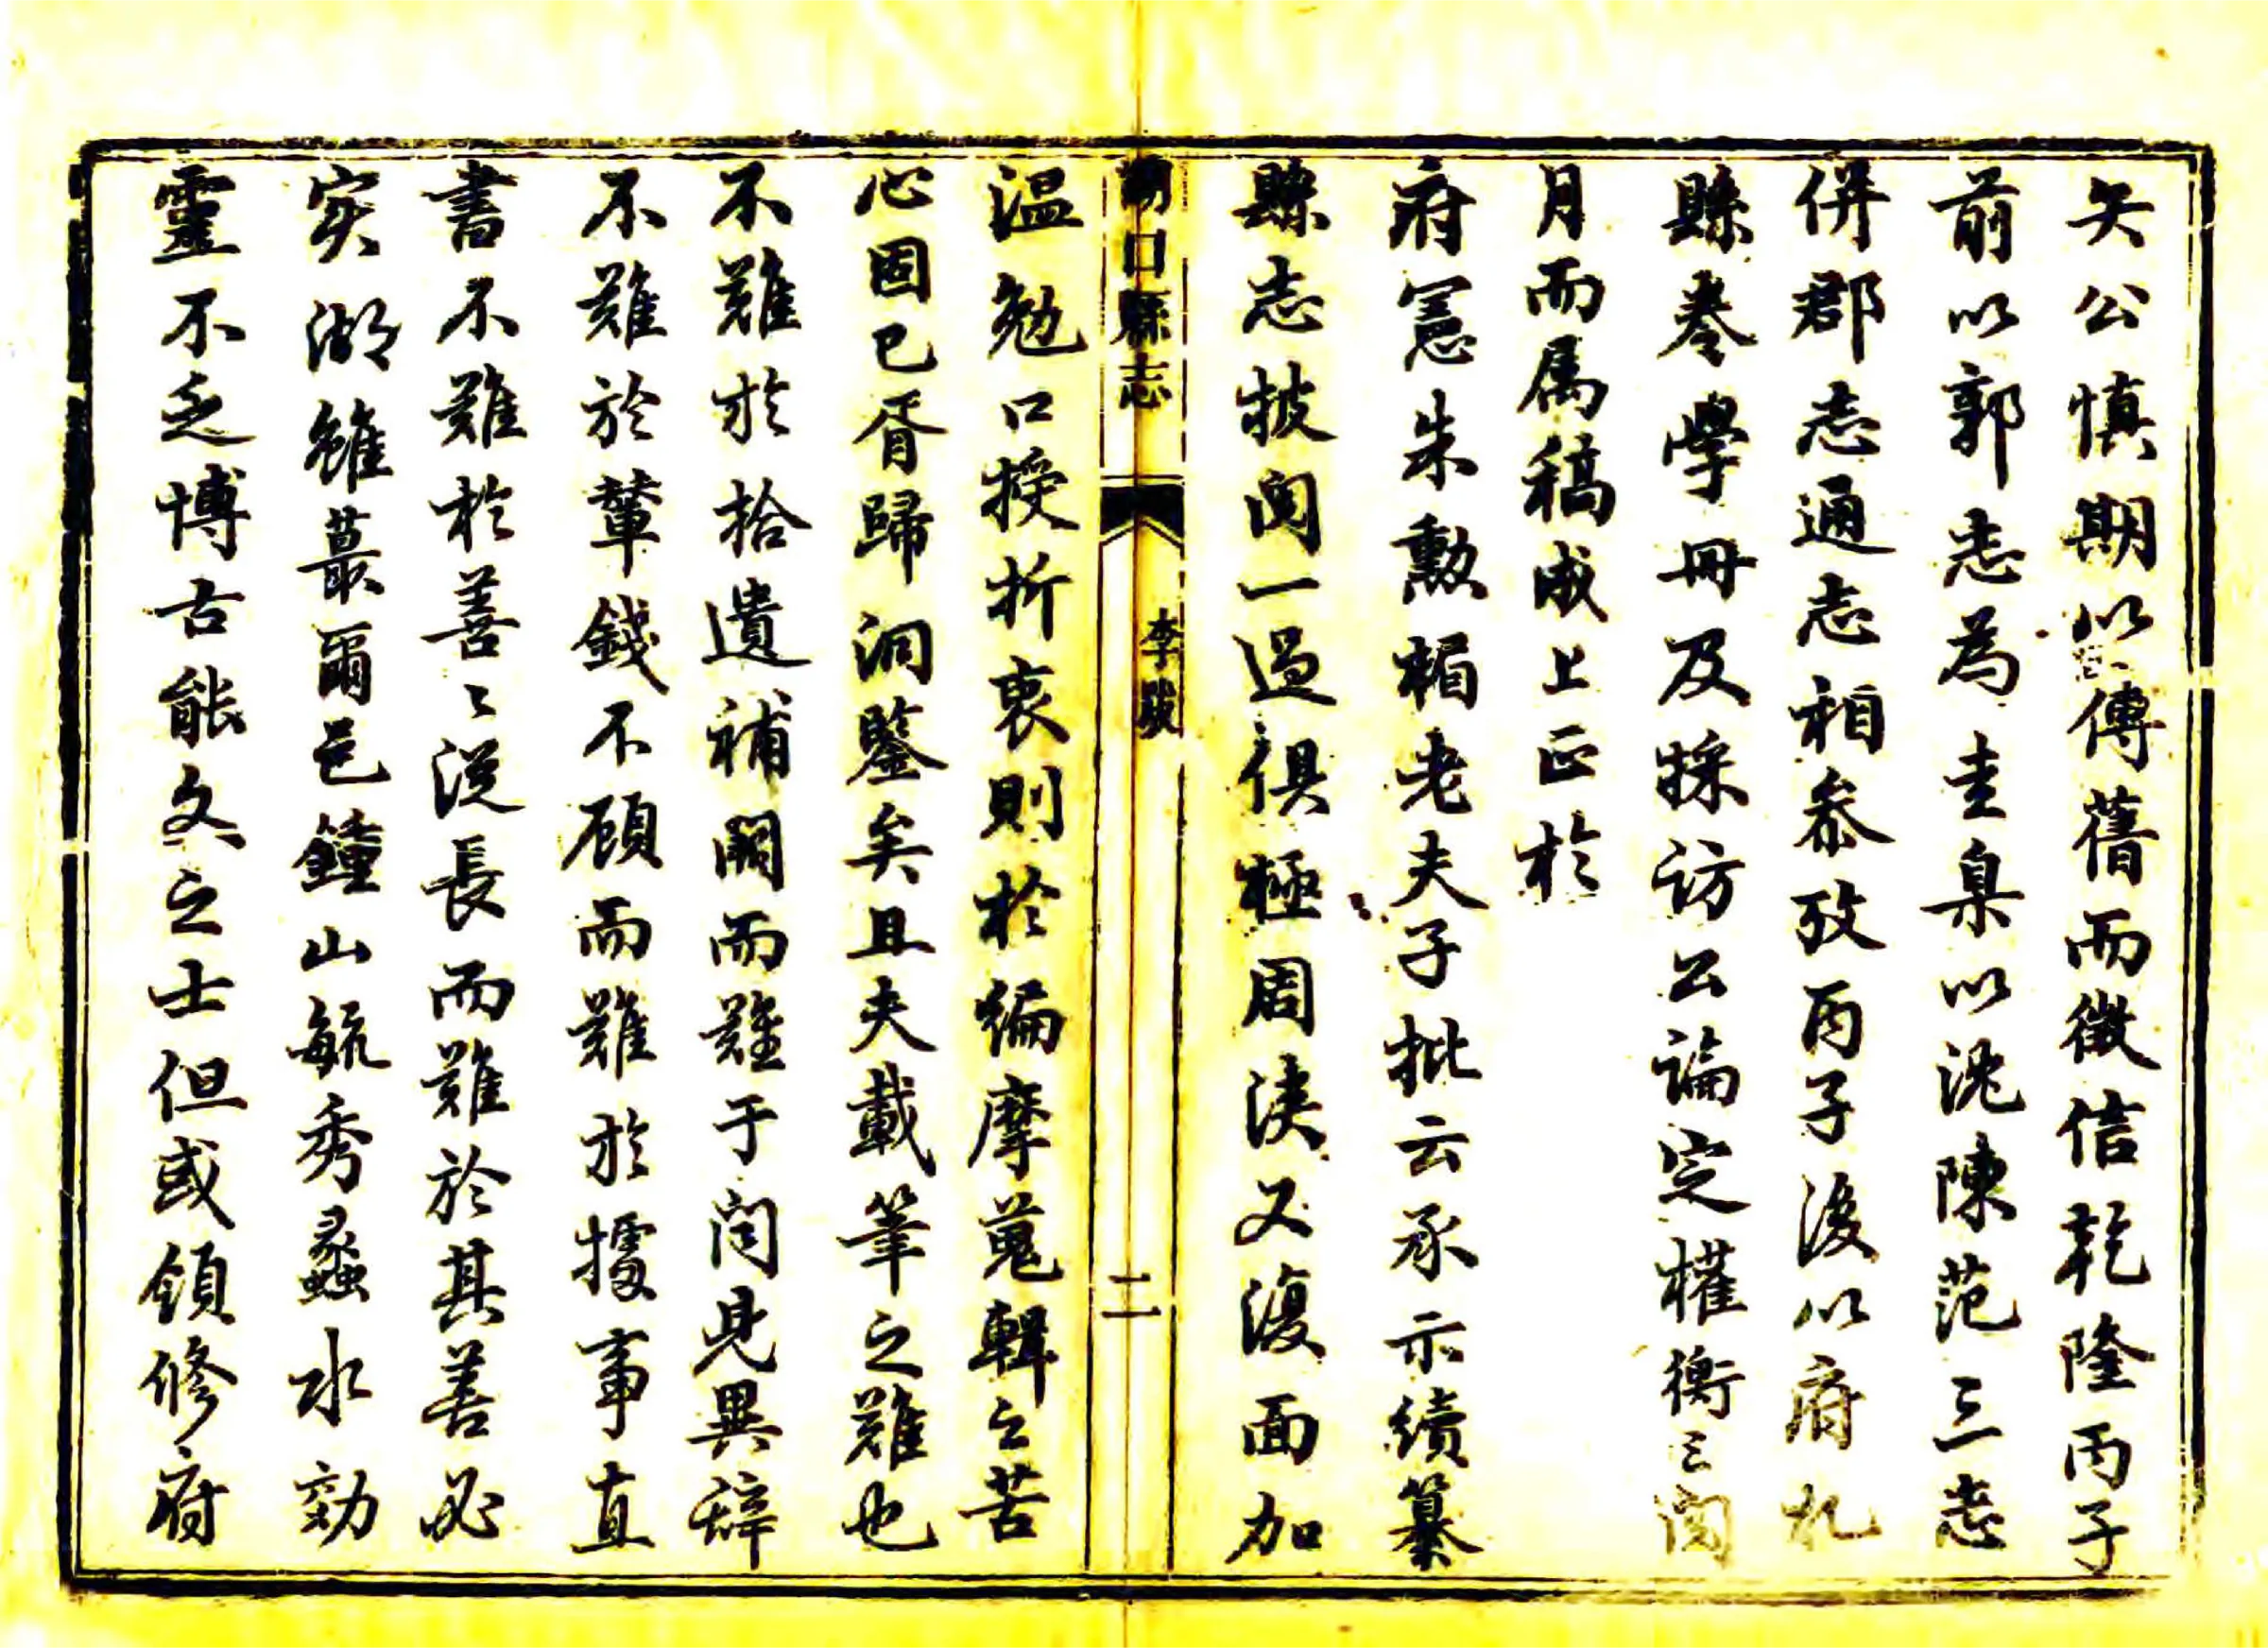 矢公慎期以傳舊而徵信乾隆丙子
前以郭志為圭臬以沈陳范三志
併郡志通志相參攷丙子後以府札
縣卷學冊及採訪公論定權衡三閱
月而属稿成上正於
府憲朱勲楣老夫子批云承示續纂
縣志披閱一過俱極周浹又復面加
湖口縣志
李跋
二
温勉口授折衷則於編摩蒐輯之苦
心固已胥歸洞鑒矣且夫載筆之難也
不難於拾遺補闕而難于闻見異辭
不難於輦錢不顧而難於據事直
書不難於善善從長而難於其善必
实湖雖蕞爾邑鐘山毓秀蠡水効
靈不乏博古能文之士但或領修府